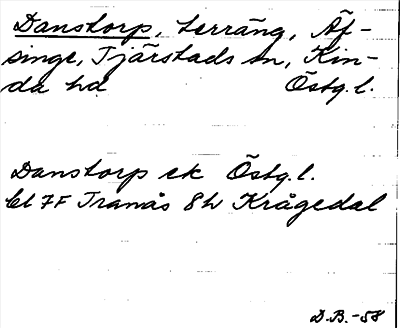 Danstorp, terräng, Äf-
singe, Tjärstads sn, Kin-
da hd Östg.l.
Danstorp ek Östg.l.
bl 7F Tranås 8h Krågedal
D.B.-58